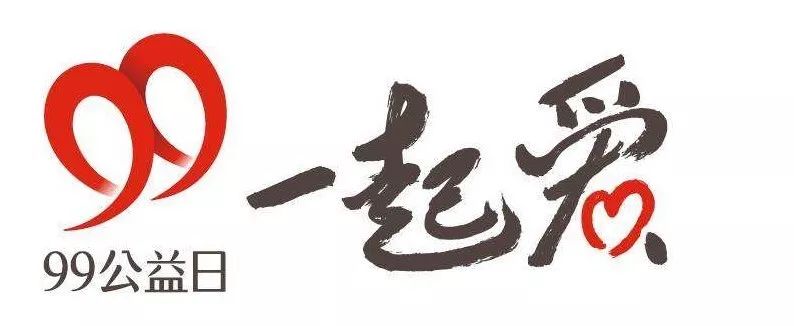 99公益日
一起爱